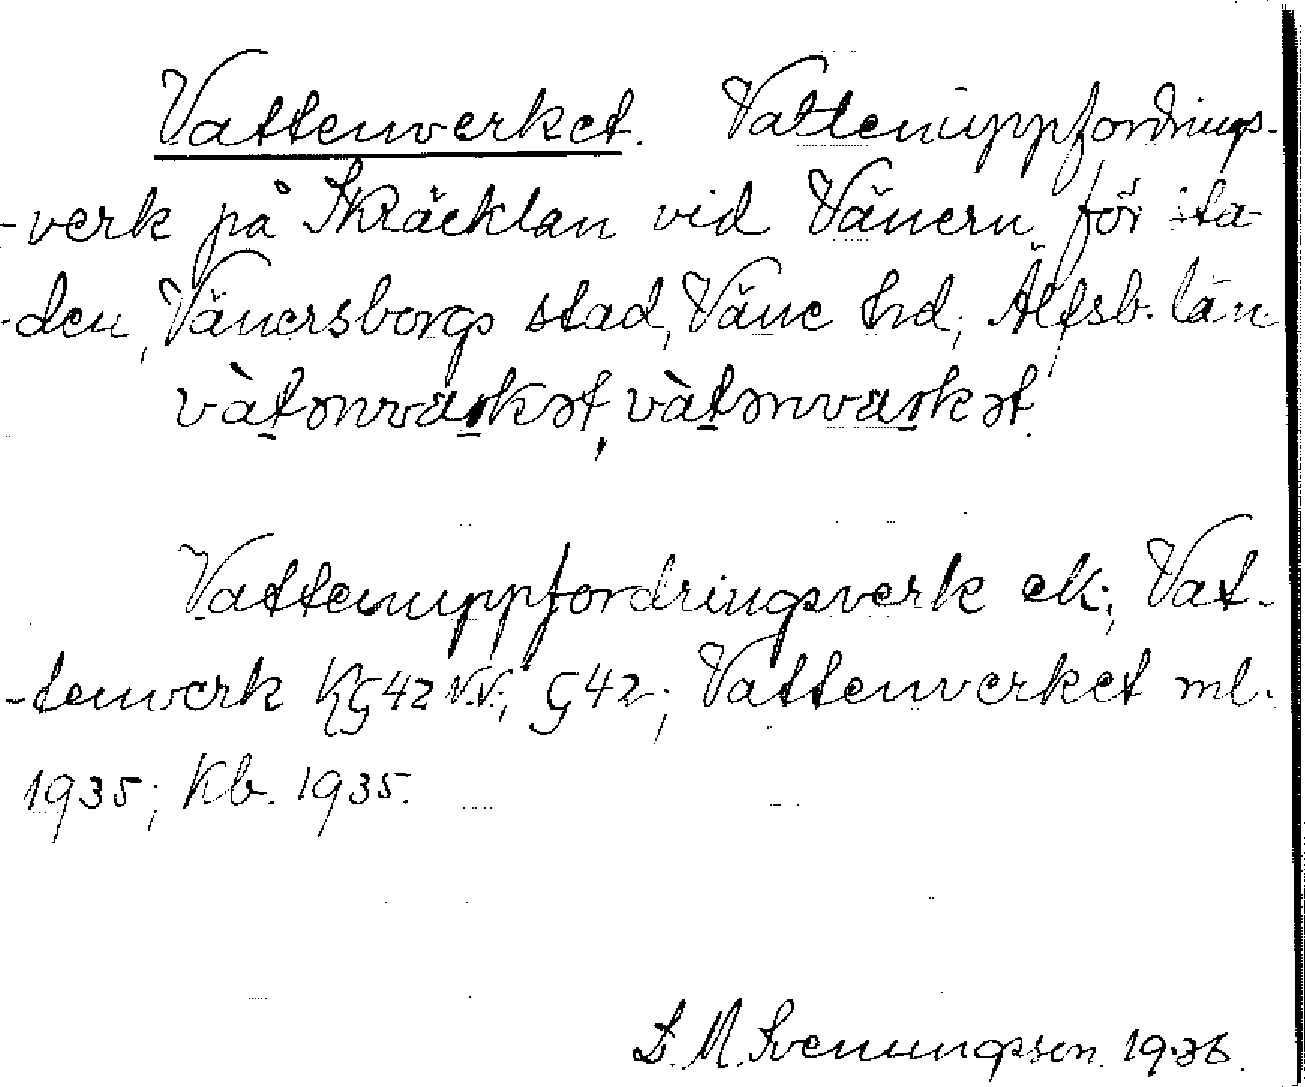 Vattenverket. Vattenuppfordrings-
-verk på Skräcklan vid Vänern för sta-
-den, Vänersborgs stad, Väne hd, Älfsb. län
vàtənvärkət, vàtənvarkət.
Vattenuppfordringsverk ek.; Vat-
-tenverk KG42 N.V.; G42; Vattenverket ml.
1935; Kb. 1935.
S. M. Svenungson. 1936.